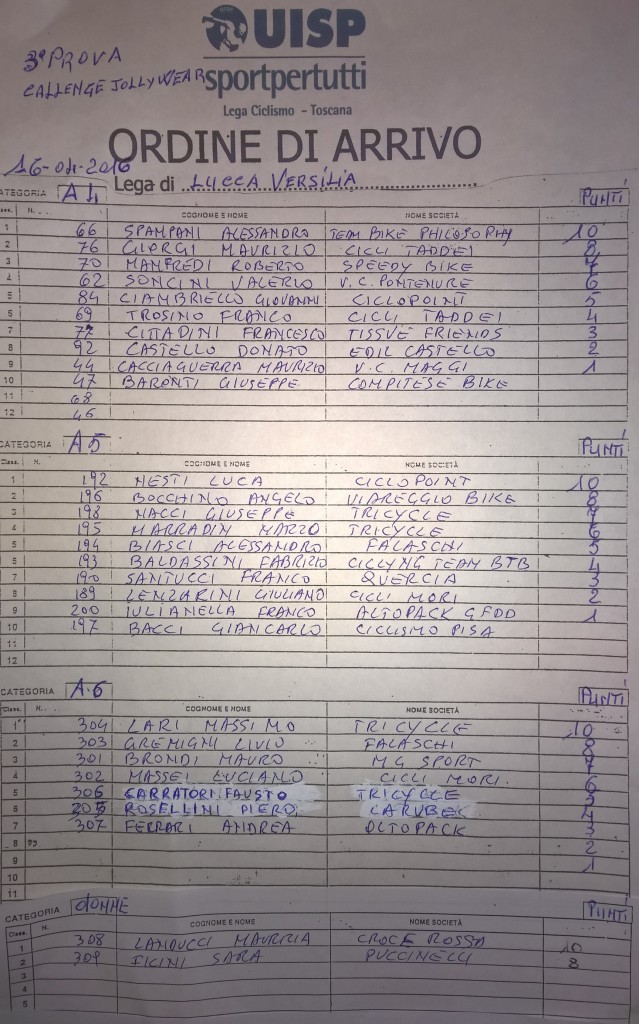 UISP
sportpertutti
Lega Ciclismo - Toscana
3ª PROVA
CALLENGE JOLLYWEAR
ORDINE DI ARRIVO
16-04-2016
Lega di LUCCA VERSILIA
CATEGORIA A4 PUNTI
Class. N. COGNOME E NOME NOME SOCIETÀ
1 66 SPAMPANI ALESSANDRO TEAM BIKE PHILOSOPHY 10
2 76 GIORGI MAURIZIO CICLI TADDEI 8
3 70 MANFREDI ROBERTO SPEEDY BIKE 7
4 62 SONCINI VALERIO V.C. PONTENURE 6
5 84 CIAMBRIELLO GIOVANNI CICLOPOINT 5
6 69 TROSINO FRANCO CICLI TADDEI 4
7 77 CITTADINI FRANCESCO TISSUE FRIENDS 3
8 92 CASTELLO DONATO EDIL CASTELLO 2
9 44 CACCIAGUERRA MAURIZIO V.C. MAGGI 1
10 47 BARONTI GIUSEPPE COMPITESE BIKE
11 68
12 46
CATEGORIA A5 PUNTI
Class. N. COGNOME E NOME NOME SOCIETÀ
1 192 NESTI LUCA CICLOPOINT 10
2 196 BOCCHINO ANGELO VIAREGGIO BIKE 8
3 198 NACCI GIUSEPPE TRICYCLE 7
4 195 MARRADIN MARZO TRICYCLE 6
5 194 BIASCI ALESSANDRO FALASCHI 5
6 193 BALDASSINI FABRIZIO CICLYNG TEAM BTB 4
7 190 SANTUCCI FRANCO QUERCIA 3
8 189 LENZARINI GIULIANO CICLI MORI 2
9 200 IULIANELLA FRANCO ALTOPACK GFDD 1
10 197 BACCI GIANCARLO CICLISMO PISA
11
12
CATEGORIA A.6 PUNTI
Class. N. COGNOME E NOME NOME SOCIETÀ
1 304 LARI MASSIMO TRICYCLE 10
2 303 GREMIGNI LIVIO FALASCHI 8
3 301 BRONDI MAURO MG SPORT 7
4 302 MASSEI LUCIANO CICLI MORI 6
5 306 CARRATORI FAUSTO TRICYCLE 5
6 305 ROSELLINI PIERO CARUBE 4
7 307 FERRARI ANDREA OLTOPACK 3
8 2
9 1
10
11
CATEGORIA DONNE PUNTI
Class. N. COGNOME E NOME NOME SOCIETÀ
1 308 LANDUCCI MAURRIA CROCE ROSSA 10
2 309 FICINI SARA PUCCINELLI 8
3
4
5